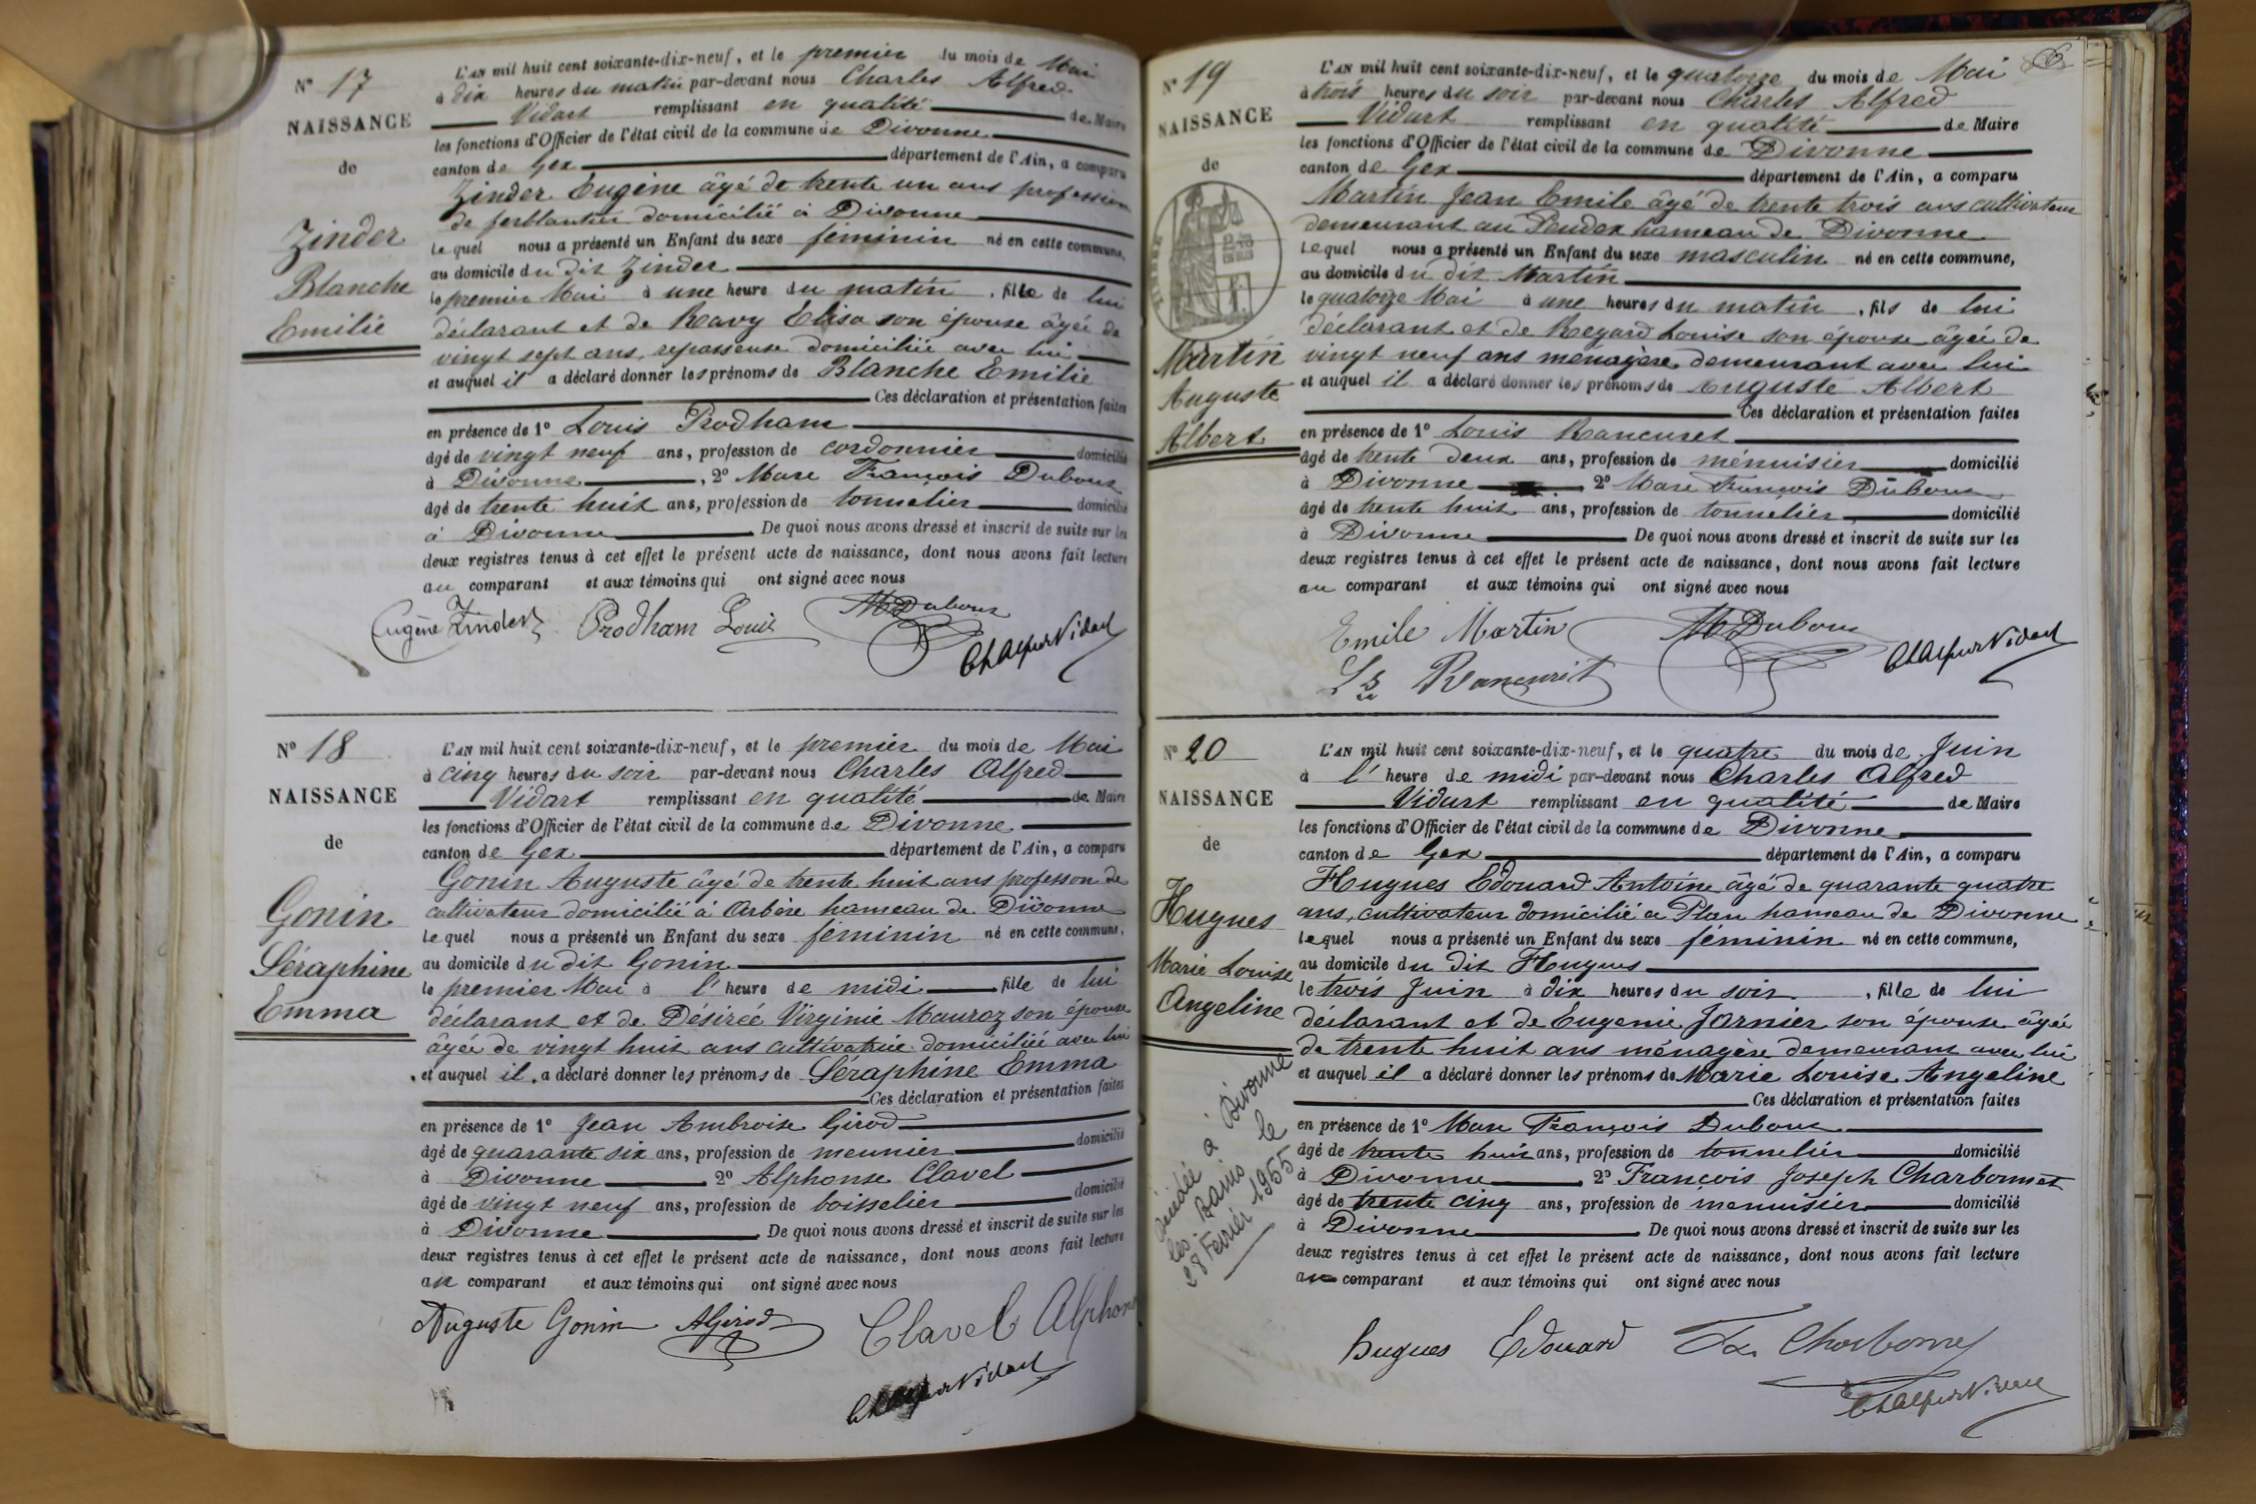 N° 17
NAISSANCE
de
Zinder
Blanche
Emilie
L'AN mil huit cent soixante-dix-neuf, et le premier du mois de Mai
à dix heures du matin par-devant nous Charles Alfred
Vidart remplissant en qualité de Maire
les fonctions d'Officier de l'état civil de la commune de Divonne
canton de Gex département de l'Ain, a comparu
Zinder Eugène âgé de trente un ans profession
de ferblantier domicilié à Divonne
lequel nous a présenté un Enfant du sexe féminin né en cette commune,
au domicile du dit Zinder
le premier Mai à une heure du matin, fille de lui
déclarant et de Ravy Elisa son épouse âgée de
vingt sept ans, repasseuse domiciliée avec lui
et auquel il a déclaré donner les prénoms de Blanche Emilie
Ces déclaration et présentation faites
en présence de 1° Louis Prodham
âgé de vingt neuf ans, profession de cordonnier domicilié
à Divonne, 2° Marc François Dubout
âgé de trente huit ans, profession de tonnelier domicilié
à Divonne De quoi nous avons dressé et inscrit de suite sur les
deux registres tenus à cet effet le présent acte de naissance, dont nous avons fait lecture
au comparant et aux témoins qui ont signé avec nous
Eugène Zinder Prodham Louis
N° 18
NAISSANCE
de
Gonin
Séraphine
Emma
L'AN mil huit cent soixante-dix-neuf, et le premier du mois de Mai
à cinq heures du soir par-devant nous Charles Alfred
Vidart remplissant en qualité de Maire
les fonctions d'Officier de l'état civil de la commune de Divonne
canton de Gex département de l'Ain, a comparu
Gonin Auguste âgé de trente huit ans profession de
cultivateur domicilié à Arbère hameau de Divonne
lequel nous a présenté un Enfant du sexe féminin né en cette commune,
au domicile du dit Gonin
le premier Mai à l'heure de midi fille de lui
déclarant et de Désirée Virginie Mouraz son épouse
âgée de vingt huit ans cultivatrice domiciliée avec lui
et auquel il a déclaré donner les prénoms de Séraphine Emma
Ces déclaration et présentation faites
en présence de 1° Jean Ambroise Girod
âgé de quarante six ans, profession de meunier domicilié
à Divonne 2° Alphonse Clavel
âgé de vingt neuf ans, profession de boisselier domicilié
à Divonne De quoi nous avons dressé et inscrit de suite sur les
deux registres tenus à cet effet le présent acte de naissance, dont nous avons fait lecture
au comparant et aux témoins qui ont signé avec nous
Auguste Gonin AGirod Clavel Alphons
N° 19
NAISSANCE
de
Martin
Auguste
Albert
L'AN mil huit cent soixante-dix-neuf, et le quatorze du mois de Mai
à trois heures du soir par-devant nous Charles Alfred
Vidart remplissant en qualité de Maire
les fonctions d'Officier de l'état civil de la commune de Divonne
canton de Gex département de l'Ain, a comparu
Martin Jean Emile âgé de trente trois ans cultivateur
demeurant au hameau de Divonne
lequel nous a présenté un Enfant du sexe masculin né en cette commune,
au domicile du dit Martin
le quatorze Mai à une heures du matin, fils de lui
déclarant et de Regard Louise son épouse âgée de
vingt neuf ans ménagère demeurant avec lui
et auquel il a déclaré donner les prénoms de Auguste Albert
Ces déclaration et présentation faites
en présence de 1° Louis Rancuret
âgé de trente deux ans, profession de ménuisier domicilié
à Divonne 2° Marc François Dubout
âgé de trente huit ans, profession de tonnelier domicilié
à Divonne De quoi nous avons dressé et inscrit de suite sur les
deux registres tenus à cet effet le présent acte de naissance, dont nous avons fait lecture
au comparant et aux témoins qui ont signé avec nous
Emile Martin
N° 20
NAISSANCE
de
Hugues
Marie Louise
Angeline
décédée à Divonne
les Bains le
28 Février 1955
L'AN mil huit cent soixante-dix-neuf, et le quatre du mois de Juin
à l'heure de midi par-devant nous Charles Alfred
Vidart remplissant en qualité de Maire
les fonctions d'Officier de l'état civil de la commune de Divonne
canton de Gex département de l'Ain, a comparu
Hugues Edouard Antoine âgé de quarante quatre
ans, cultivateur domicilié à Plan hameau de Divonne
lequel nous a présenté un Enfant du sexe féminin né en cette commune,
au domicile du dit Hugues
le trois Juin à dix heures du soir, fille de lui
déclarant et de Eugenie Jarnier son épouse âgée
de trente huit ans ménagère demeurant avec lui
et auquel il a déclaré donner les prénoms de Marie Louise Angeline
Ces déclaration et présentation faites
en présence de 1° Marc François Dubout
âgé de trente huit ans, profession de tonnelier domicilié
à Divonne 2° François Joseph Charbonnet
âgé de trente cinq ans, profession de menuisier domicilié
à Divonne De quoi nous avons dressé et inscrit de suite sur les
deux registres tenus à cet effet le présent acte de naissance, dont nous avons fait lecture
au comparant et aux témoins qui ont signé avec nous
Hugues Edouard